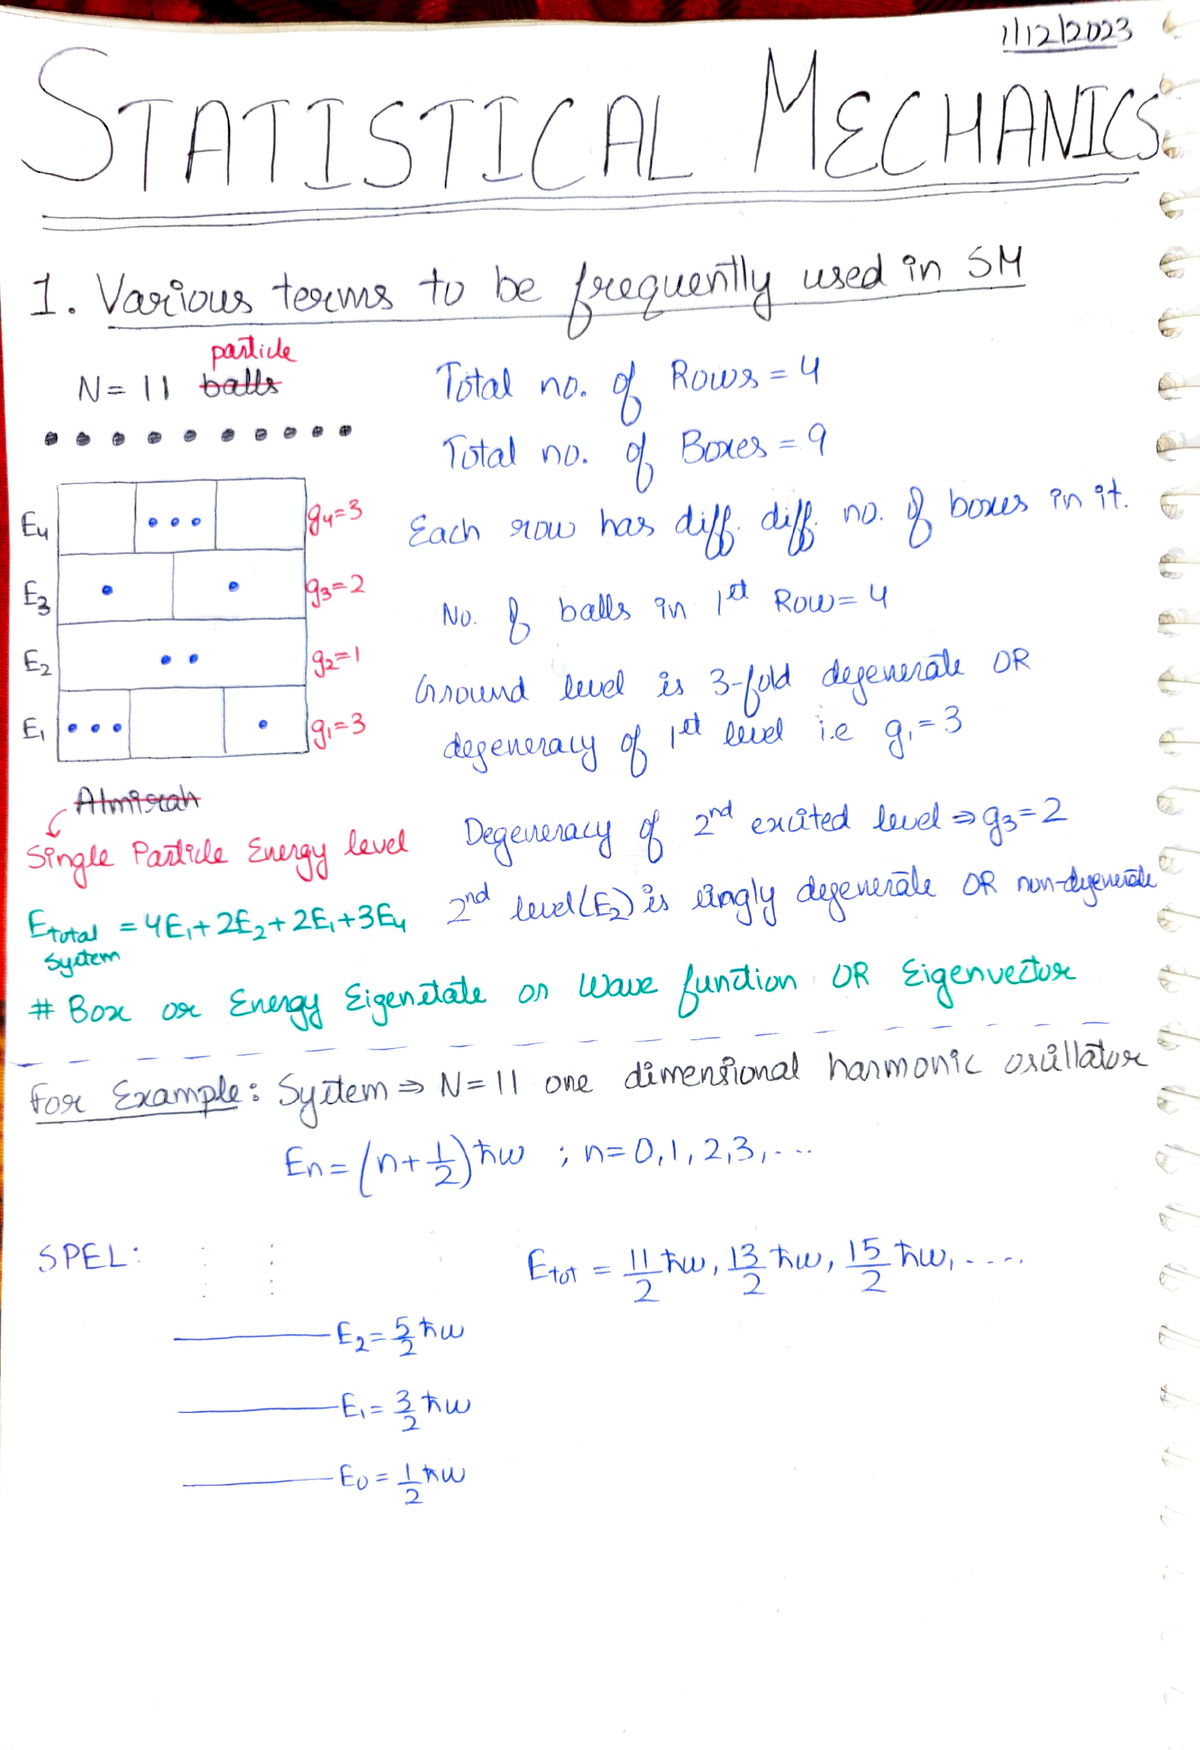 1/12/2023
STATISTICAL MECHANICS
1. Various terms to be frequently used in SM
particle
N = 11 balls
Total no. of Rows = 4
Total no. of Boxes = 9
E4 g4=3
Each row has diff. diff. no. of boxes in it.
E3 g3=2
No. of balls in 1st Row = 4
E2 g2=1
Ground level is 3-fold degenerate OR
E1 g1=3
degeneracy of 1st level i.e g1 = 3
Almirah
Single Particle Energy level
Degeneracy of 2nd excited level ⇒ g3=2
2nd level (E2) is singly degenerate OR non-degenerate
Etotal system = 4E1 + 2E2 + 2E1 + 3E4
# Box or Energy Eigenstate or Wave function OR Eigenvector
For Example: System ⇒ N = 11 one dimensional harmonic oscillator
En = (n + 1/2) ħω ; n = 0, 1, 2, 3, ....
SPEL:
Etot = 11/2 ħω, 13/2 ħω, 15/2 ħω, .....
E2 = 5/2 ħω
E1 = 3/2 ħω
E0 = 1/2 ħω